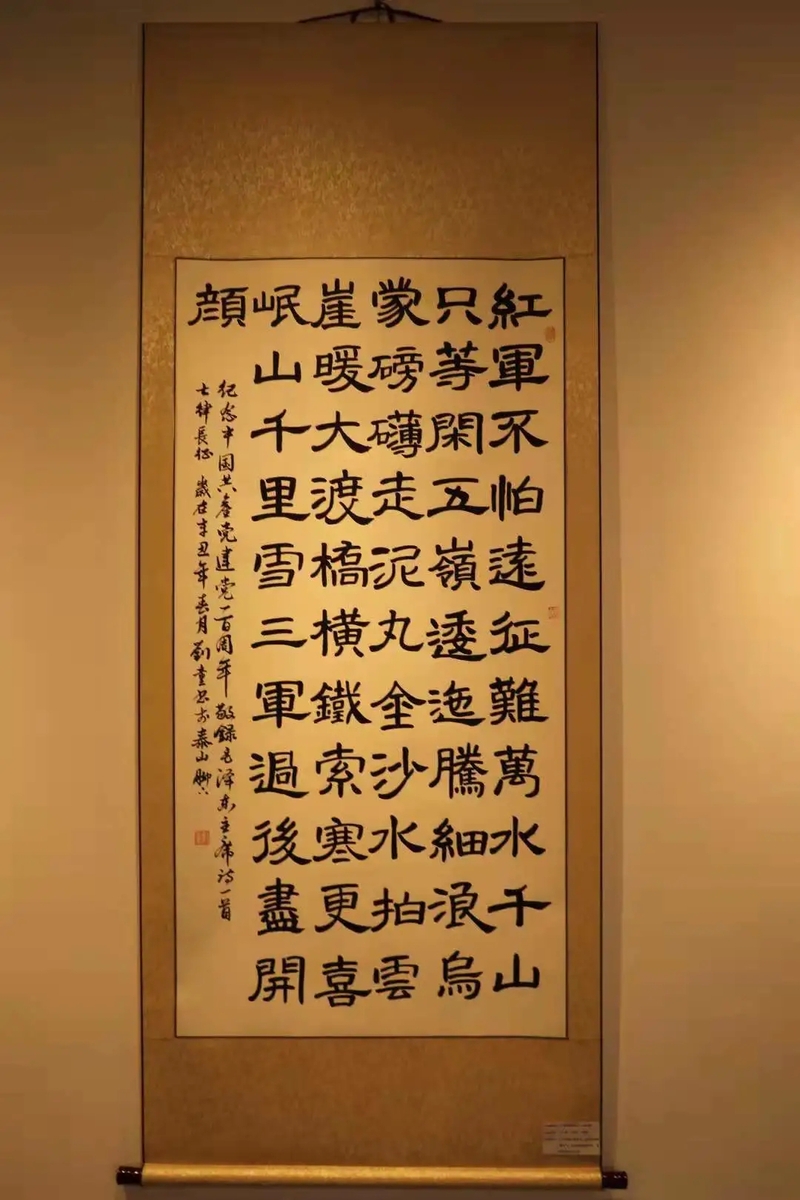 紅軍不怕遠征難萬水千山
只等閑五嶺逶迤騰細浪烏
蒙磅礴走泥丸金沙水拍雲
崖暖大渡橋橫鐵索寒更喜
岷山千里雪三軍過後盡開
顔
纪念中国共産党建党一百周年敬録毛泽东主席诗一首
七律長征 歲在辛丑年春月劉书於泰山脚下